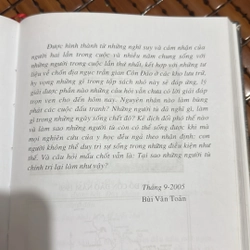 Được hình thành từ những nghĩ suy và cảm nhận của
người hai lần trong cuộc và nhiều năm chung sống với
những người trong cuộc lần thứ nhất, kết hợp với những tư
liệu về chốn địa ngục trần gian Côn Đảo ở các kho lưu trữ,
hy vọng những gì trong tập sách nhỏ này sẽ đáp ứng, lý
giải được phần nào những câu hỏi vẫn chưa có lời giải đáp
trọn vẹn cho đến hôm nay. Nguyên nhân nào làm bùng
phát các cuộc đấu tranh? Những người tù đã nghĩ gì, làm
gì trong những ngày sống chết đó? Kẻ địch đối phó thế
nào và làm sao những người tù còn có thể sống được khi mà
mọi nghiên cứu của y học đều ngả theo nhận định: con
người không thể duy trì sự sống trong những điều kiện như
thế. Và câu hỏi mấu chốt vẫn là: Tại sao những người tù
chính trị lại làm như vậy?
Tháng 9-2005
Bùi Văn Toản